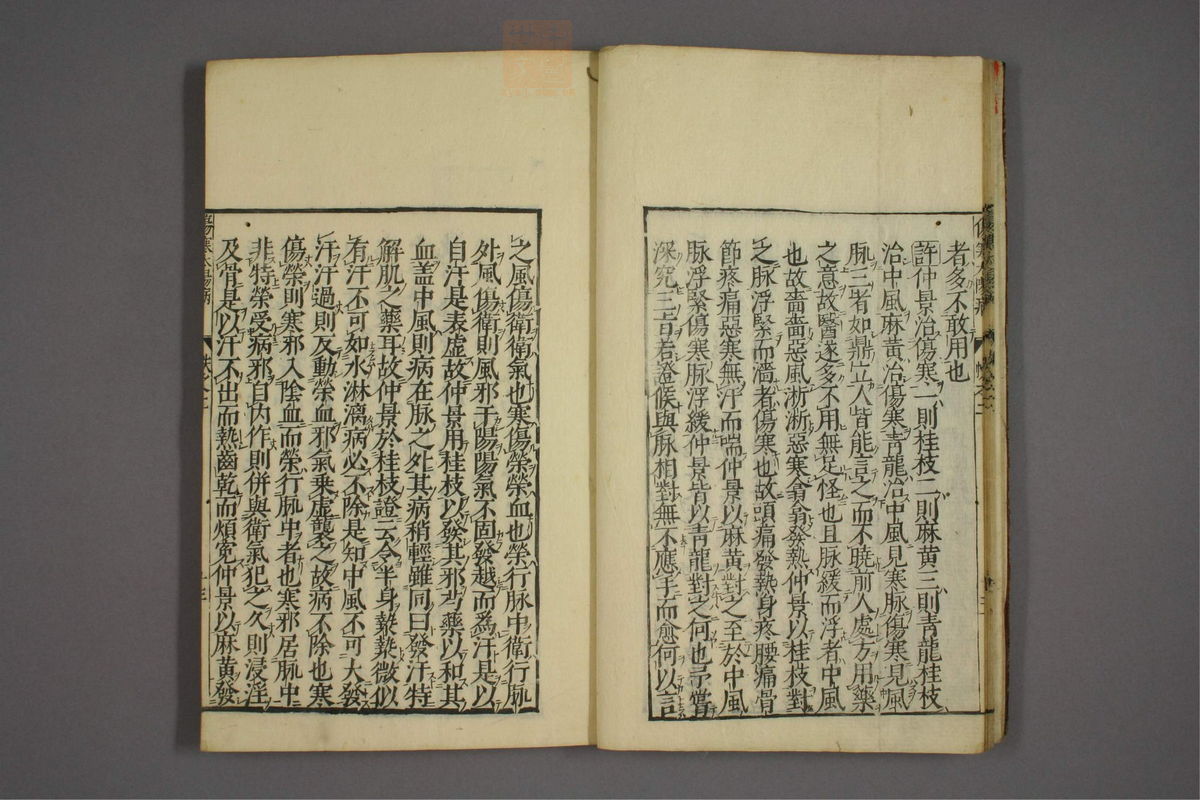 者多不敢用也
許仲景治傷寒一則桂枝二則麻黃三則青龍桂枝
治中風麻黃治傷寒青龍治中風見寒脉傷寒見風
脉三者如鼎立人皆能言之而不曉前人處方用藥
之意故醫遂多不用無足怪也且脉緩而浮者中風
也故嗇嗇惡風淅淅惡寒翕翕發熱仲景以桂枝對
之脉浮緊而濇者傷寒也故頭痛發熱身疼腰痛骨
節疼痛惡寒無汗而喘仲景以麻黃對之至於中風
脉浮緊傷寒脉浮緩仲景皆以青龍對之何也予嘗
深究三旨若證候與脉相對無不應手而愈何以言
之風傷衛衛氣也寒傷榮榮血也榮行脉中衛行脉
外風傷衛則風邪干陽陽氣不固發越而爲汗是以
自汗是表虛故仲景用桂枝以發其邪芍藥以和其
血盖中風則病在脉之外其病稍輕雖同曰發汗特
解肌之藥耳故仲景於桂枝證云令半身漐漐微似
有汗不可如水淋漓病必不除是知中風不可大發
汗汗過則反動榮血邪氣乘虛襲之故病不除也寒
傷榮則寒邪入陰血而榮行脉中者也寒邪居脉中
非特榮受病邪自内作則併與衛氣犯之久則浸淫
及骨是以汗不出而熱齒乾而煩寃仲景以麻黃發